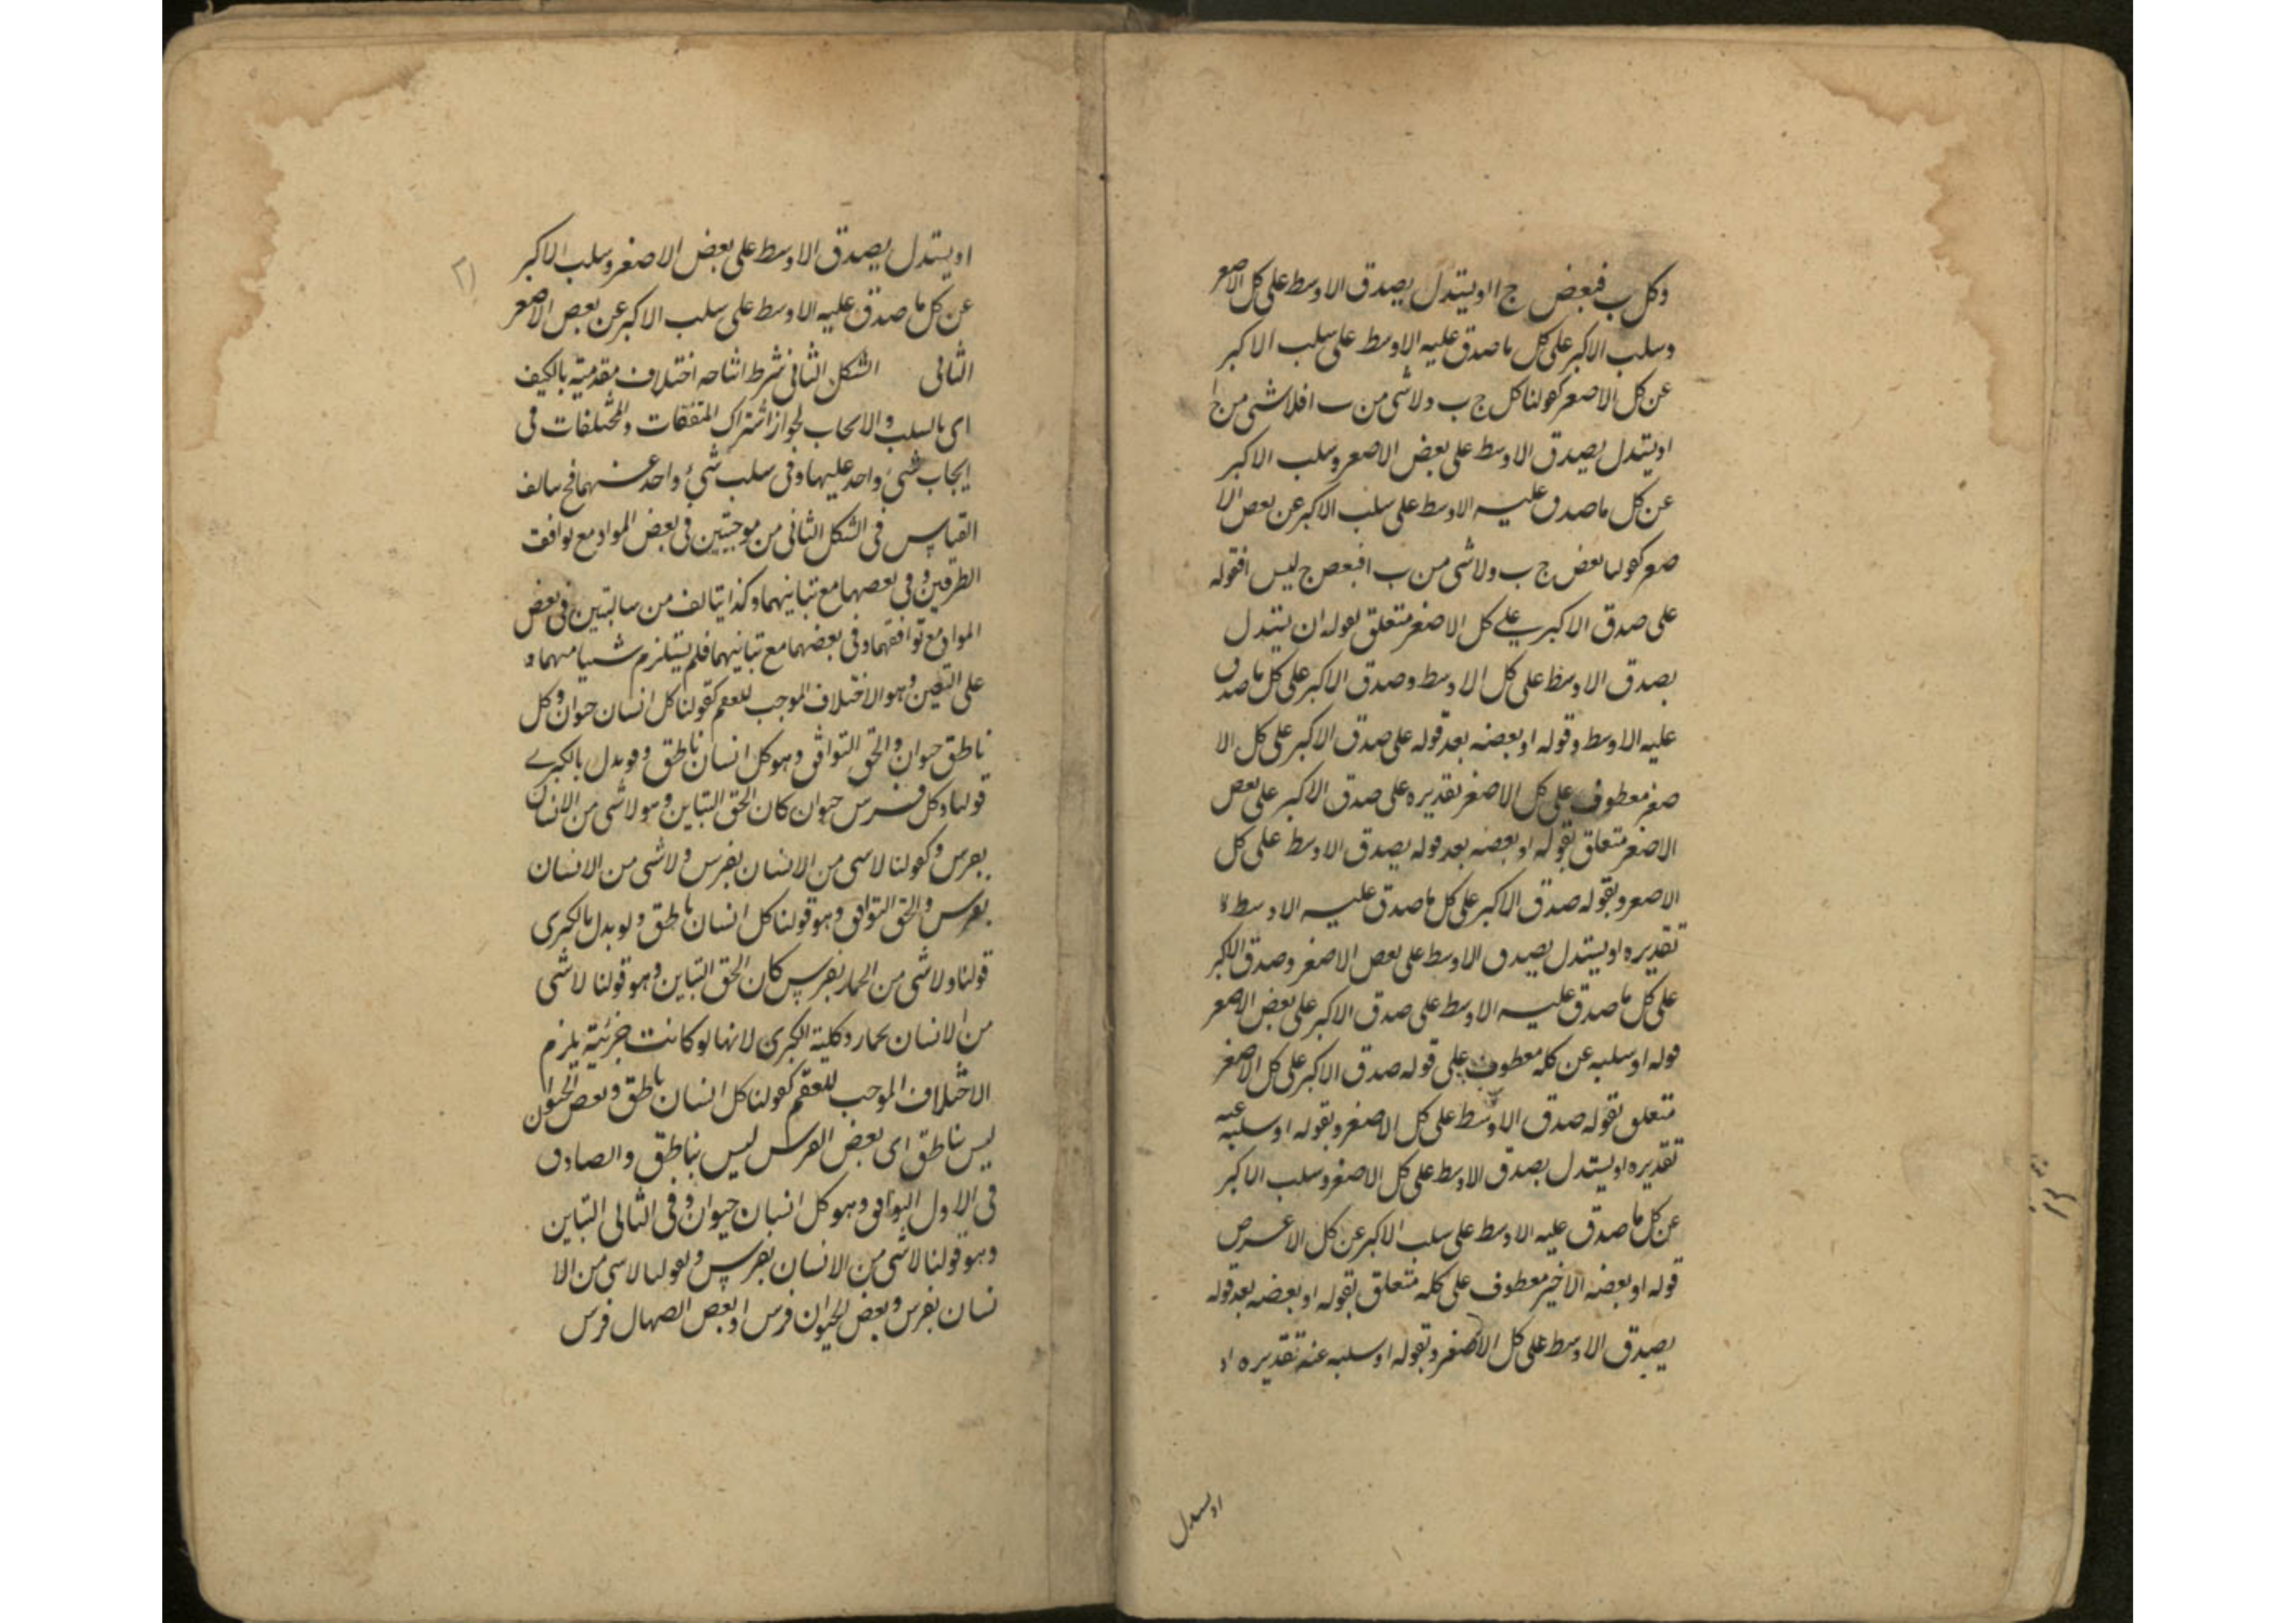 وكل ب فبعض ج ا او يستدل بصدق الاوسط على كل الاصغر
وسلب الاكبر على كل ما صدق عليه الاوسط على سلب الاكبر
عن كل الاصغر كقولنا كل ج ب ولا شئ من ب ا فلا شئ من ج ا
او يستدل بصدق الاوسط على بعض الاصغر وسلب الاكبر
عن كل ما صدق عليه الاوسط على سلب الاكبر عن بعض الا
صغر كقولنا بعض ج ب ولا شئ من ب ا فبعض ج ليس ا فقوله
على صدق الاكبر على كل الاصغر متعلق بقوله ان يستدل
بصدق الاوسط على كل الاوسط وصدق الاكبر على كل ما صدق
عليه الاوسط وقوله او بعضه بعد قوله على صدق الاكبر على كل الا
صغر معطوف على كل الاصغر تقديره على صدق الاكبر على بعض
الاصغر متعلق بقوله او بعضه بعد قوله بصدق الاوسط على كل
الاصغر وبقوله صدق الاكبر على كل ما صدق عليه الاوسط
تقديره او يستدل بصدق الاوسط على بعض الاصغر وصدق الاكبر
على كل ما صدق عليه الاوسط على صدق الاكبر على بعض الاصغر
قوله او سلبه عن كله معطوف على قوله صدق الاكبر على كل الاصغر
متعلق بقوله صدق الاوسط على كل الاصغر وبقوله او سلبه عنه
تقديره او يستدل بصدق الاوسط على كل الاصغر وسلب الاكبر
عن كل ما صدق عليه الاوسط على سلب الاكبر عن كل
قوله او بعضه الاخير معطوف على كله متعلق بقوله او بعضه بعد قوله
بصدق الاوسط على كل الاصغر وبقوله او سلبه عنه تقديره او
او يستدل
٢١
او يستدل بصدق الاوسط على بعض الاصغر وسلب الاكبر
عن كل ما صدق عليه الاوسط على سلب الاكبر عن بعض الاصغر
الثانى الشكل الثانى شرط انتاجه اختلاف مقدمتيه بالكيف
اى بالسلب والايجاب لجواز اشتراك المتفقات والمختلفات فى
ايجاب شئ واحد عليها وفى سلب شئ واحد عنهما فح يتالف
القياس فى الشكل الثانى من موجبتين فى بعض المواد مع توافق
الطرفين وفى بعضها مع تباينهما وكذا يتالف من سالبتين فى بعض
المواد مع توافقهما وفى بعضها مع تباينهما فلم يستلزم شيا منهما و
على التعين وهو الاختلاف الموجب للعقم كقولنا كل انسان حيوان وكل
ناطق حيوان والحق التوافق وهو كل انسان ناطق ولو بدل بالكبرے
قولنا وكل فرس حيوان كان الحق التباين وهو لا شى من الانسان
بفرس وكقولنا لا شى من الانسان بفرس ولا شى من الانسان
بفرس والحق التوافق وهو قولنا كل انسان ناطق ولو بدل بالكبرى
قولنا ولا شى من الحمار بفرس كان الحق التباين وهو قولنا لا شى
من الانسان بحمار وكلية الكبرى لانها لو كانت جزئية يلزم
الاختلاف الموجب للعقم كقولنا كل انسان ناطق وبعض الحيوان
ليس بناطق اى بعض الفرس ليس بناطق والصادق
فى الاول التوافق وهو كل انسان حيوان وفى الثانى التباين
وهو قولنا لا شى من الانسان بفرس وبقولنا لا شى من الا
نسان بفرس وبعض الحيوان فرس او بعض الصهال فرس